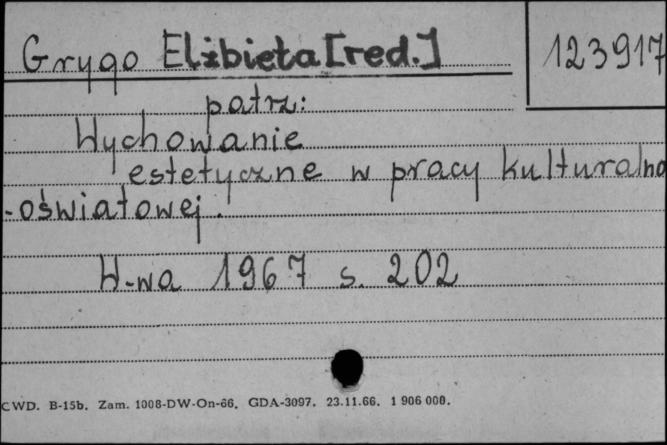 Grygo Elżbieta [red.]
123917
patrz:
Wychowanie
estetyczne w pracy kulturalno
-oświatowej.
W-wa 1967 s. 202
CWD. B-15b. Zam. 1008-DW-On-66. GDA-3097. 23.11.66. 1 906 000.